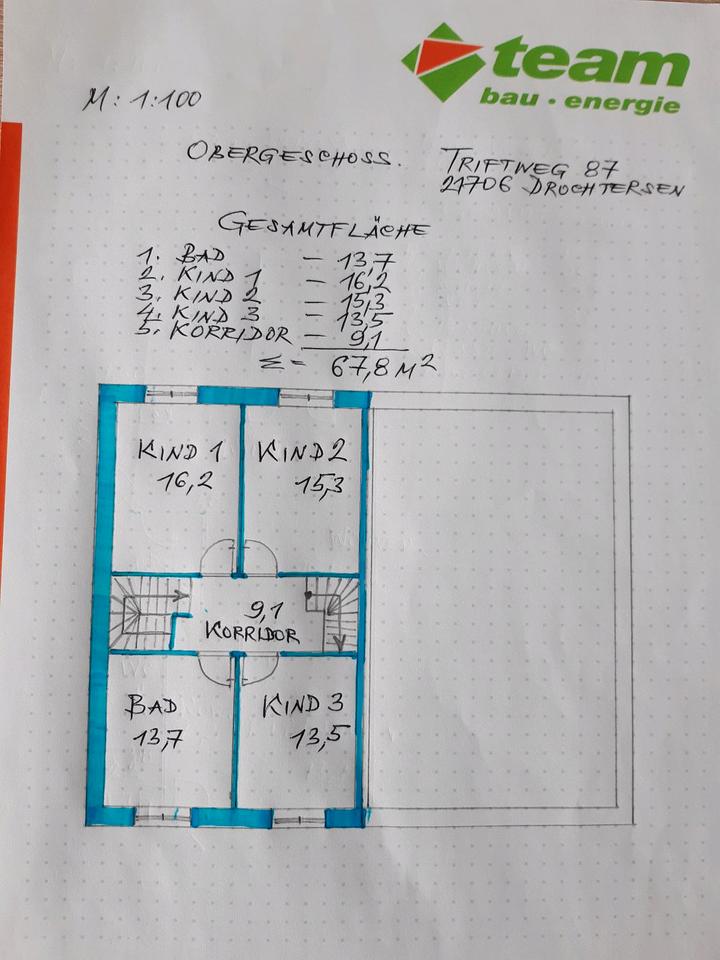 team
bau · energie
M: 1:100
OBERGESCHOSS. TRIFTWEG 87
21706 DROCHTERSEN
GESAMTFLÄCHE
1. BAD – 13,7
2. KIND 1 – 16,2
3. KIND 2 – 15,3
4. KIND 3 – 13,5
5. KORRIDOR – 9,1
Σ = 67,8 M²
KIND 1 KIND 2
16,2 15,3
9,1
KORRIDOR
BAD KIND 3
13,7 13,5